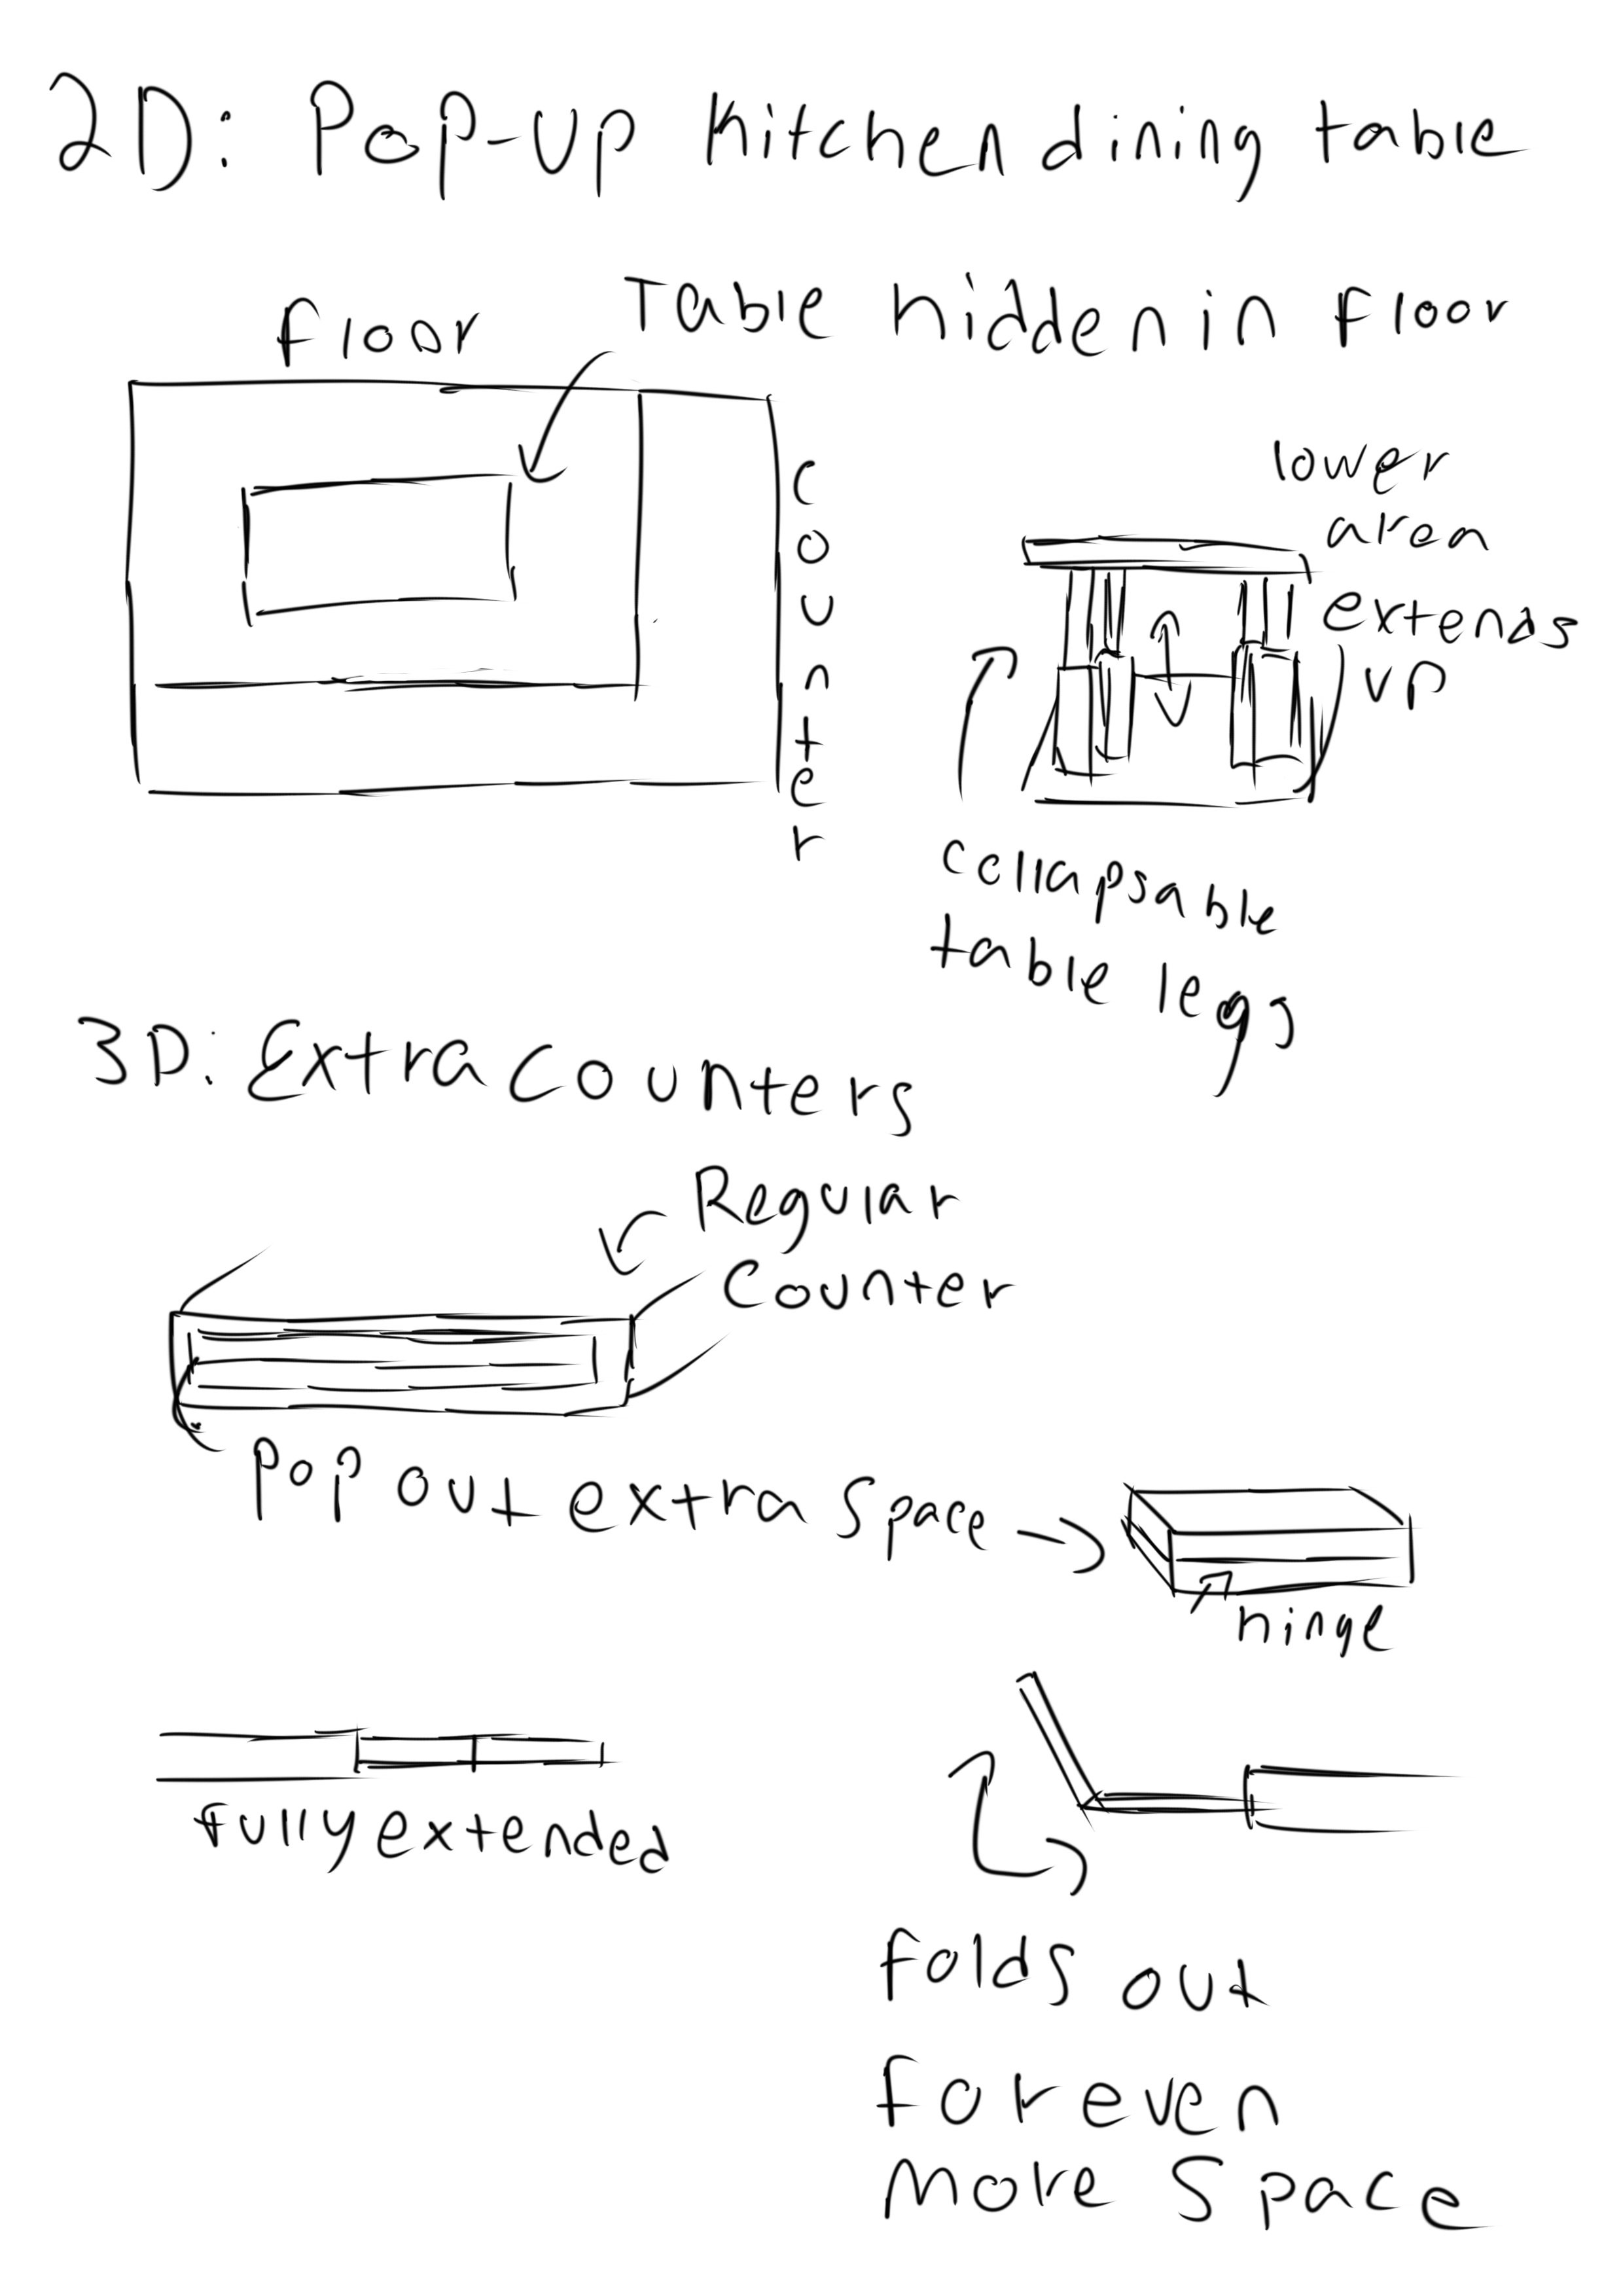 2D: Pop-up Kitchen dining table
floor
Table hidden in floor
counter
lower
area
extends
up
collapsable
table legs
3D: Extra counters
Regular
Counter
Pop out extra space
hinge
fully extended
folds out
for even
more space